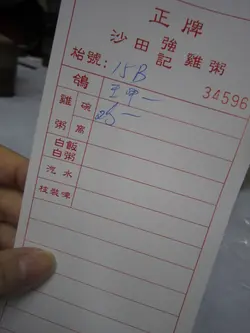 正牌
沙田強記雞粥
枱號：15B
34596
鴿
雞碗
粥窩
白飯
白粥
汽水
枝裝啤